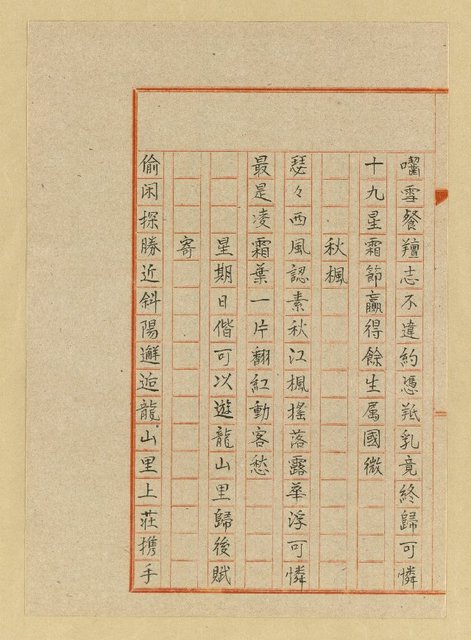 囓雪餐羶志不違約憑羝乳竟終歸可憐
十九星霜節贏得餘生属國微
秋楓
瑟々西風認素秋江楓搖落露華浮可憐
最是凌霜葉一片翻紅動客愁
星期日偕可以遊龍山里歸後賦
寄
偷闲探勝近斜陽邂逅龍山里上莊携手